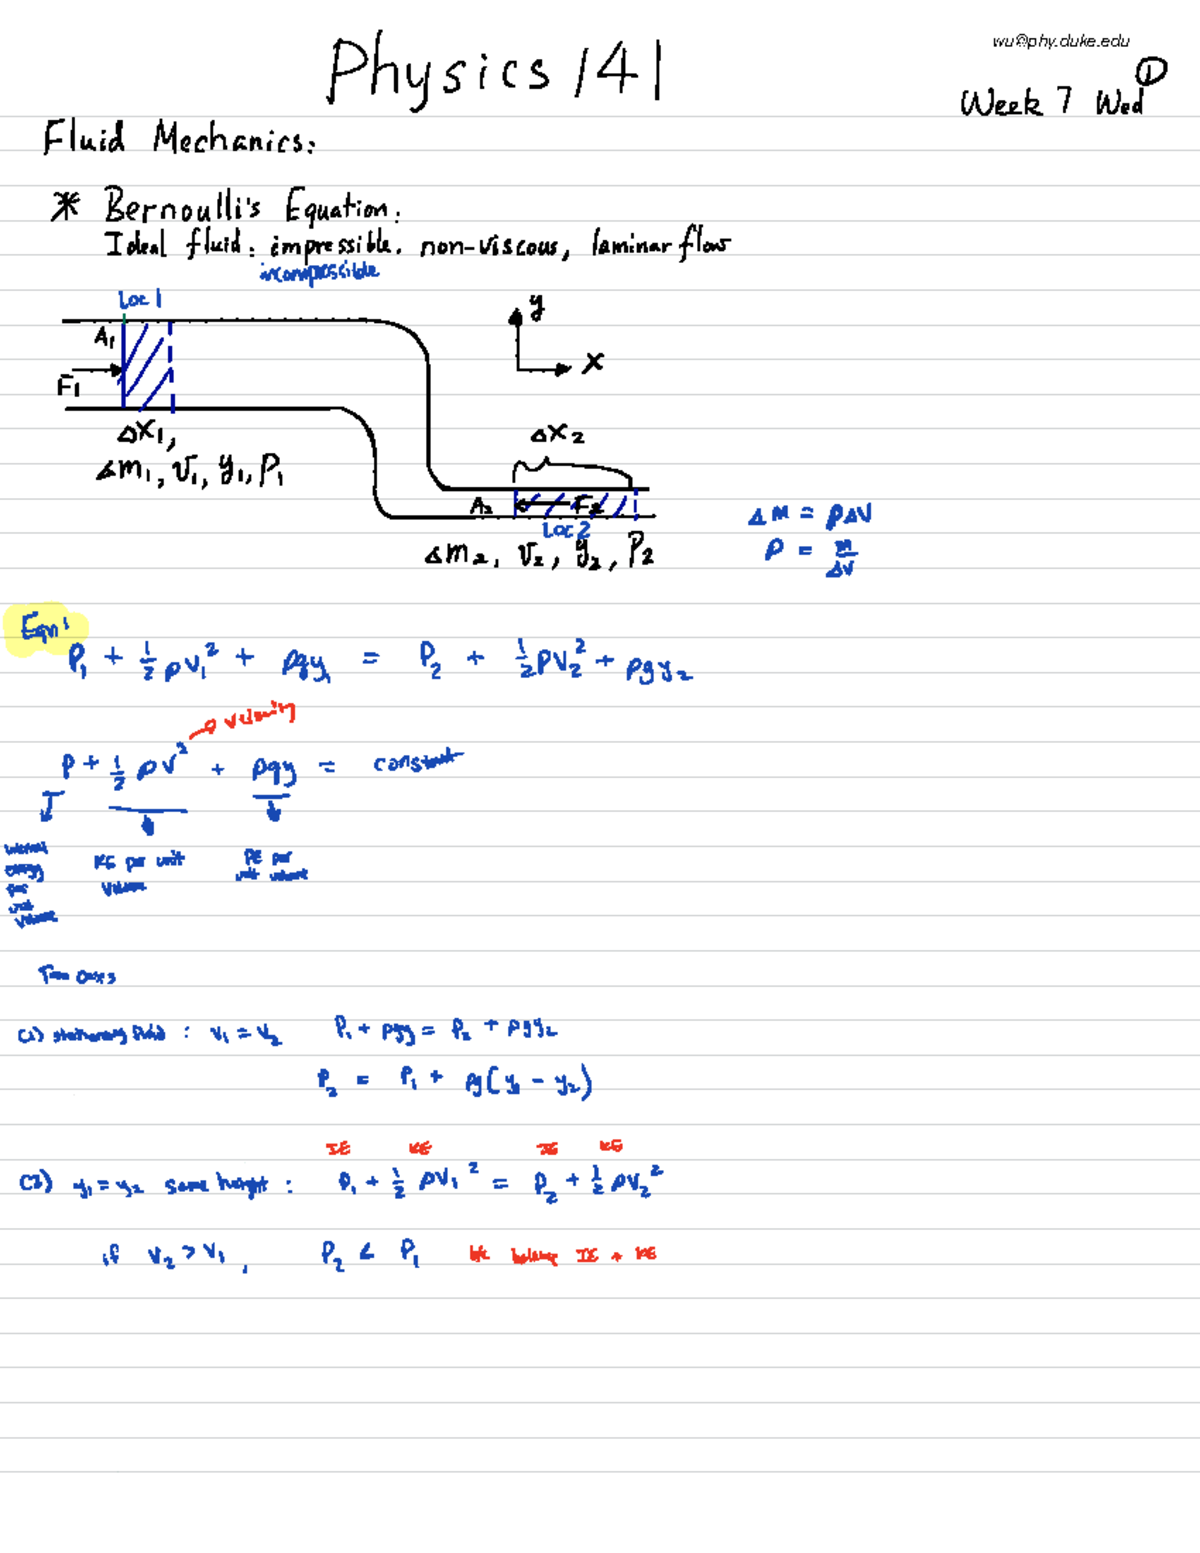 wu@phy.duke.edu
Physics 141
①
Week 7 Wed
Fluid Mechanics:
* Bernoulli's Equation:
Ideal fluid: impressible. non-viscous, laminar flow
incompressible
Loc 1
A₁
F₁
y
x
Δx₁,
Δm₁, v₁, y₁, P₁
Δx₂
A₂ F₂
Loc 2
Δm₂, v₂, y₂, P₂
ΔM = ρΔV
ρ = m/ΔV
Eqn:
P₁ + ½ρv₁² + ρgy₁ = P₂ + ½ρv₂² + ρgy₂
velocity
P + ½ρv² + ρgy = constant
internal energy per unit volume
KE per unit volume
PE per unit volume
Two cases
(1) stationary fluid: v₁ = v₂ P₁ + ρgy = P₂ + ρgy₂
P₂ = P₁ + ρg(y₁ - y₂)
IE KE IE KE
(2) y₁ = y₂ same height: P₁ + ½ρv₁² = P₂ + ½ρv₂²
if v₂ > v₁, P₂ < P₁ b/c balance IE + KE